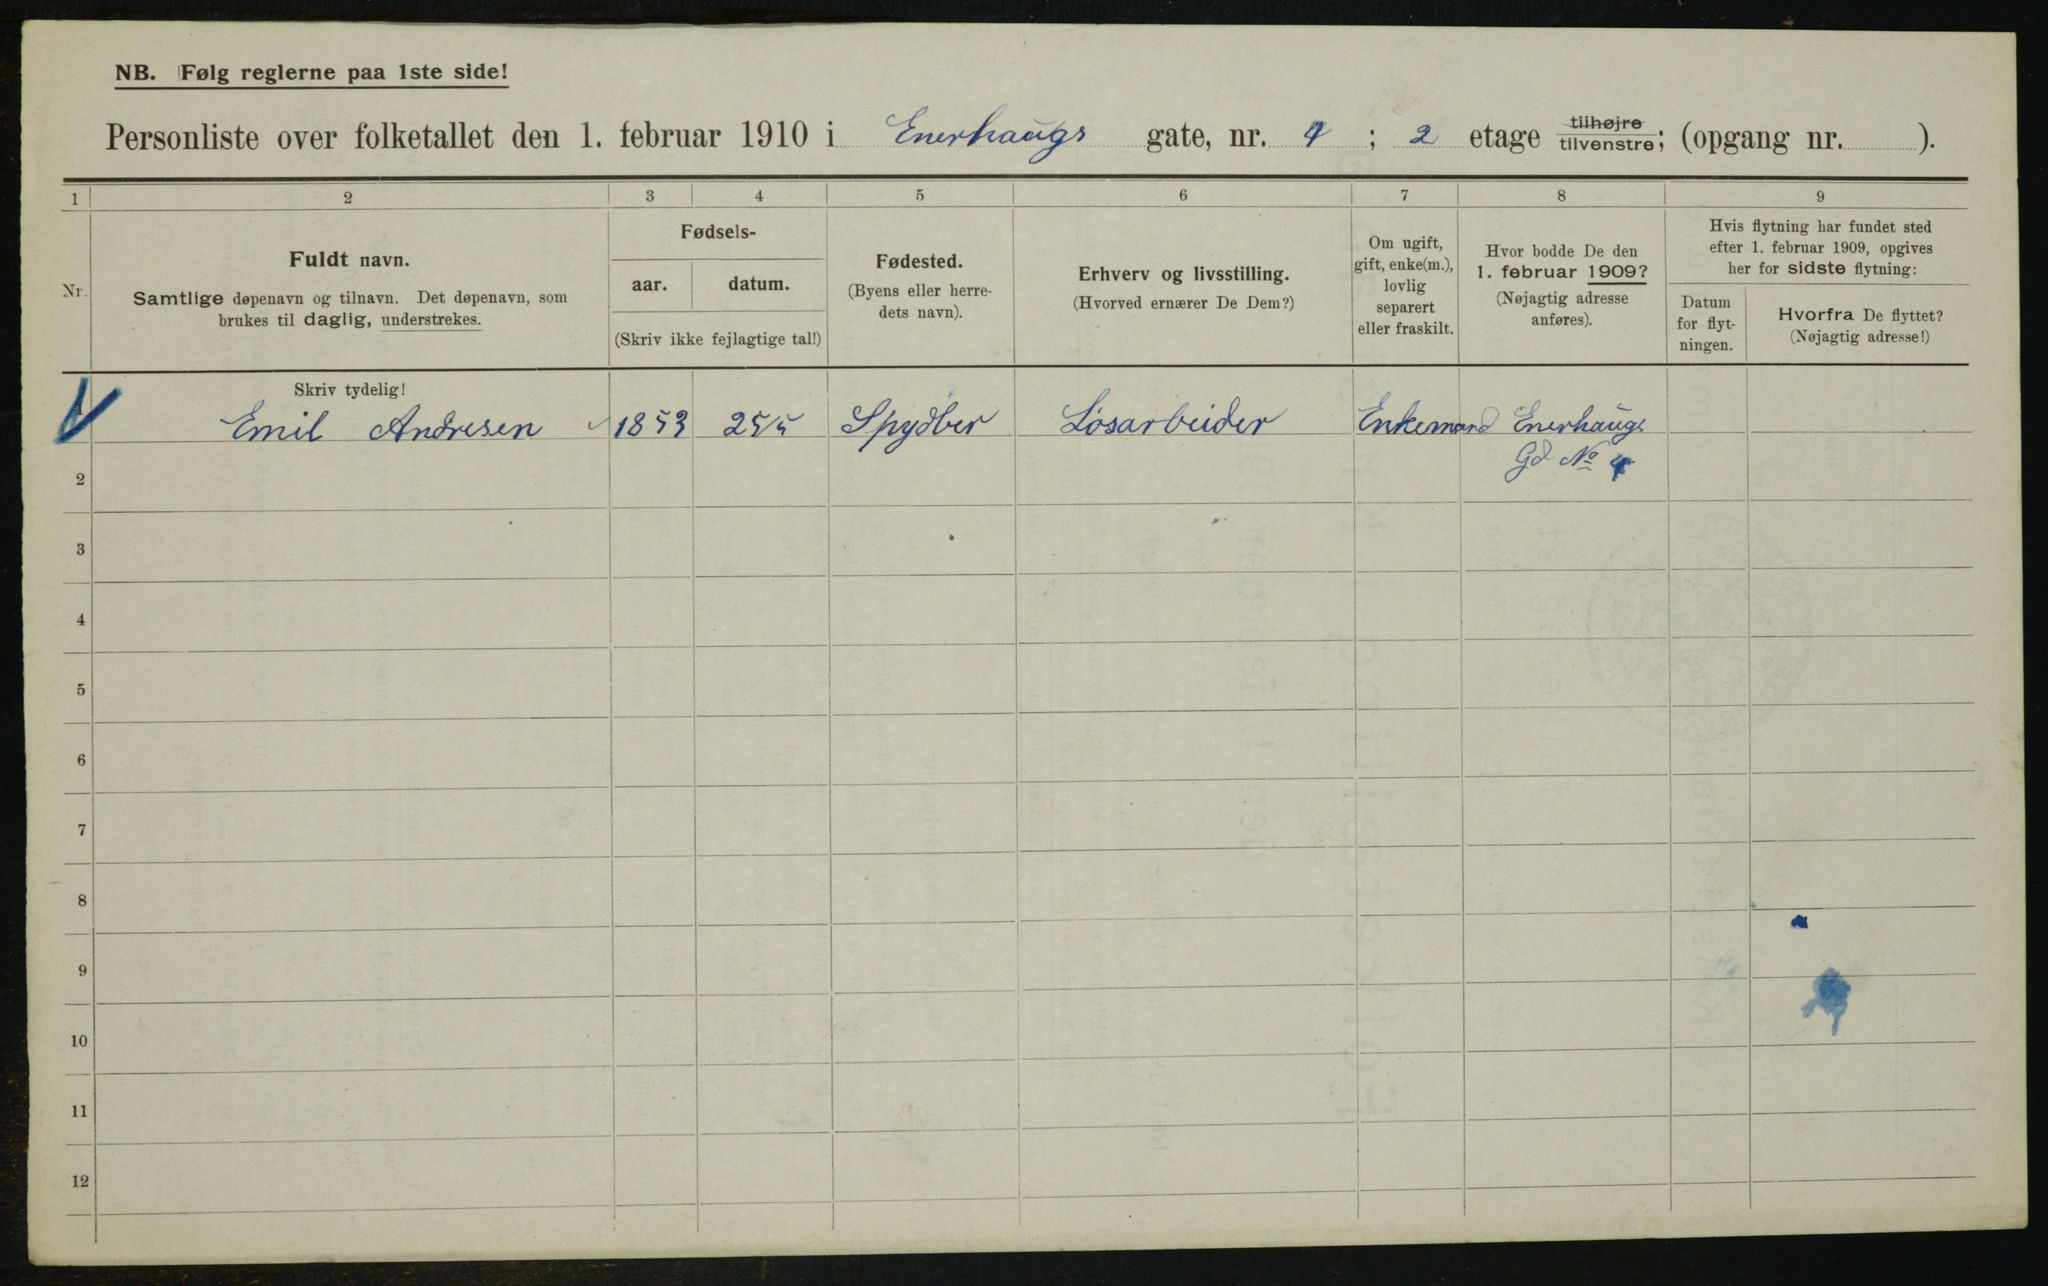 NB. Følg reglerne paa 1ste side!
Personliste over folketallet den 1. februar 1910 i Enerhaugs gate, nr. 4 ; 2 etage tilhøjre tilvenstre; (opgang nr. ).
1 2 3 4 5 6 7 8 9
Nr.
Fuldt navn.
Samtlige døpenavn og tilnavn. Det døpenavn, som
brukes til daglig, understrekes.
Fødsels-
aar. datum.
(Skriv ikke fejlagtige tal!)
Fødested.
(Byens eller herre-
dets navn).
Erhverv og livsstilling.
(Hvorved ernærer De Dem?)
Om ugift,
gift, enke(m.),
lovlig
separert
eller fraskilt.
Hvor bodde De den
1. februar 1909?
(Nøjagtig adresse
anføres).
Hvis flytning har fundet sted
efter 1. februar 1909, opgives
her for sidste flytning:
Datum
for flyt-
ningen.
Hvorfra De flyttet?
(Nøjagtig adresse!)
Skriv tydelig!
Emil Andresen 1853 25/5 Spydber Løsarbeider Enkemand Enerhaugs
Gd No 4
2
3
4
5
6
7
8
9
10
11
12